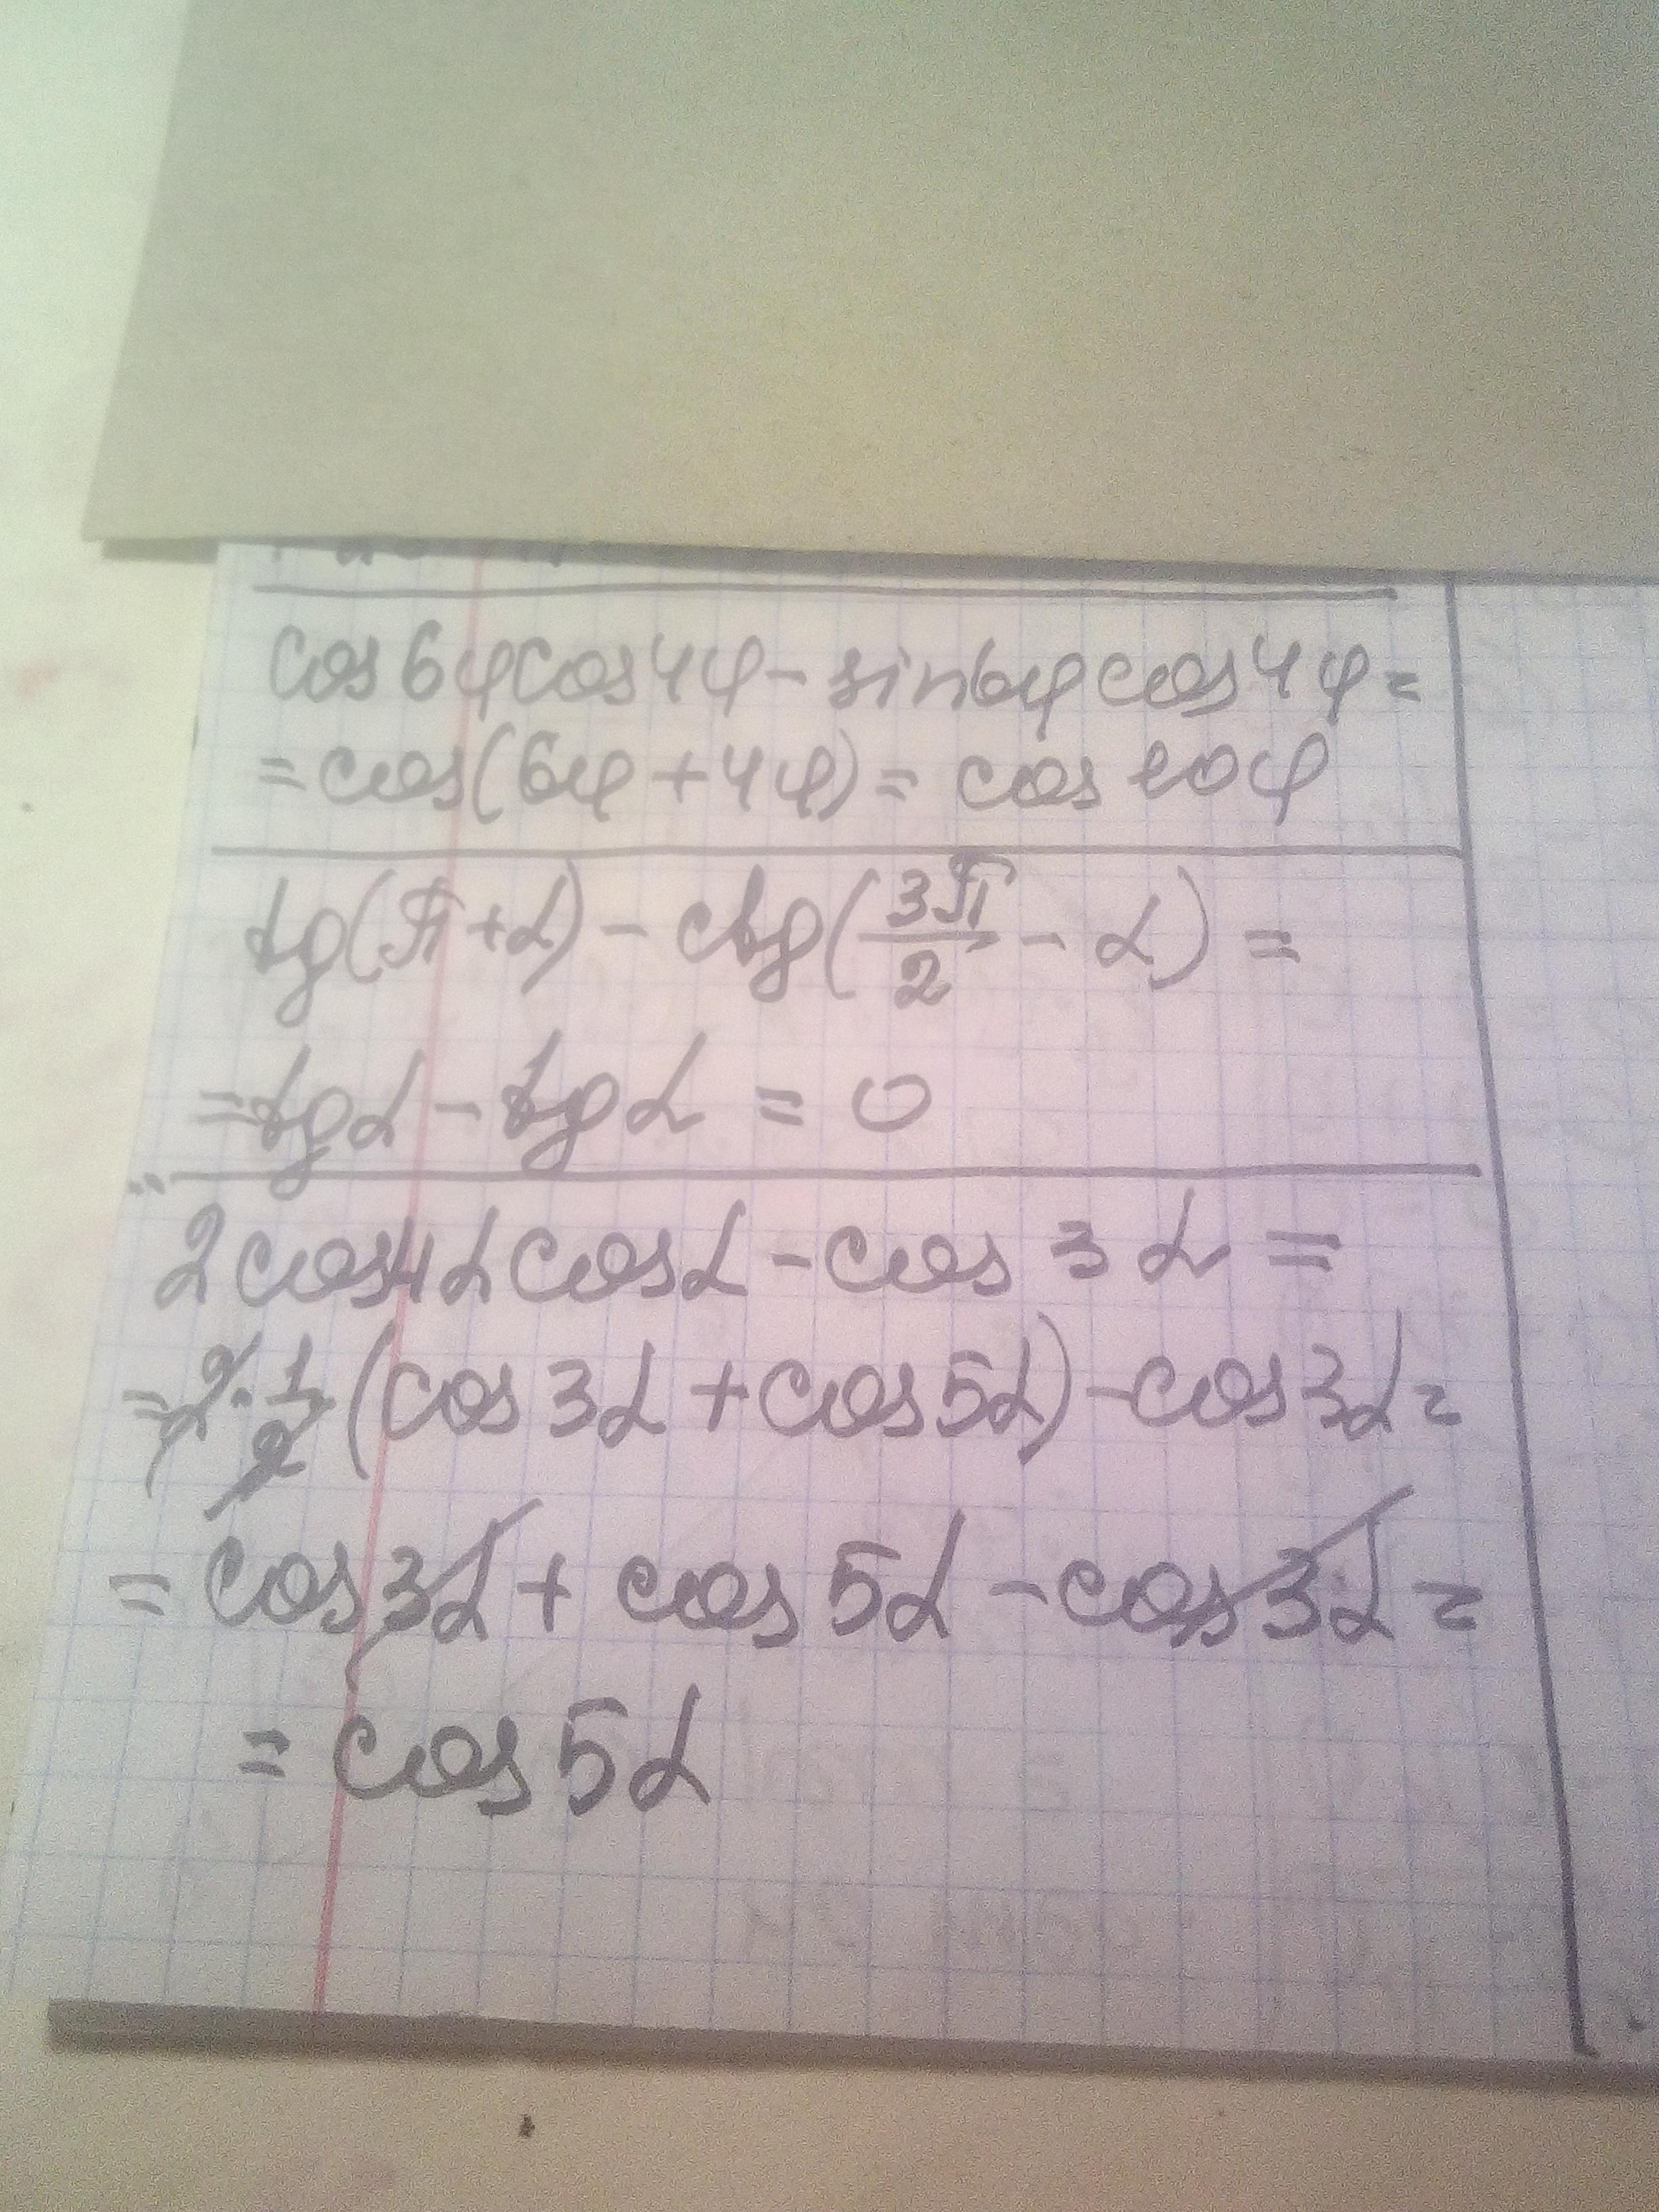 cos6φcos4φ - sin6φcos4φ =
= cos(6φ + 4φ) = cos 10φ
tg(π + α) - ctg(3π/2 - α) =
= tgα - tgα = 0
2cos4αcosα - cos 3α =
= 2·1/2 (cos3α + cos5α) - cos3α =
= cos3α + cos5α - cos3α =
= cos5α